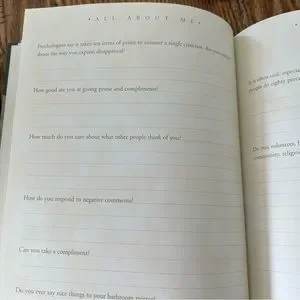 • ALL ABOUT ME •
Psychologists say it takes ten items of praise to counter a single criticism. Are you
about the way you express disapproval?
How good are you at giving praise and compliments?
How much do you care about what other people think of you?
How do you respond to negative comments?
Can you take a compliment?
Do you ever say nice things to your bathroom mirror?
It is often said, especial
people do eighty perce
Do you volunteer,
community, religio